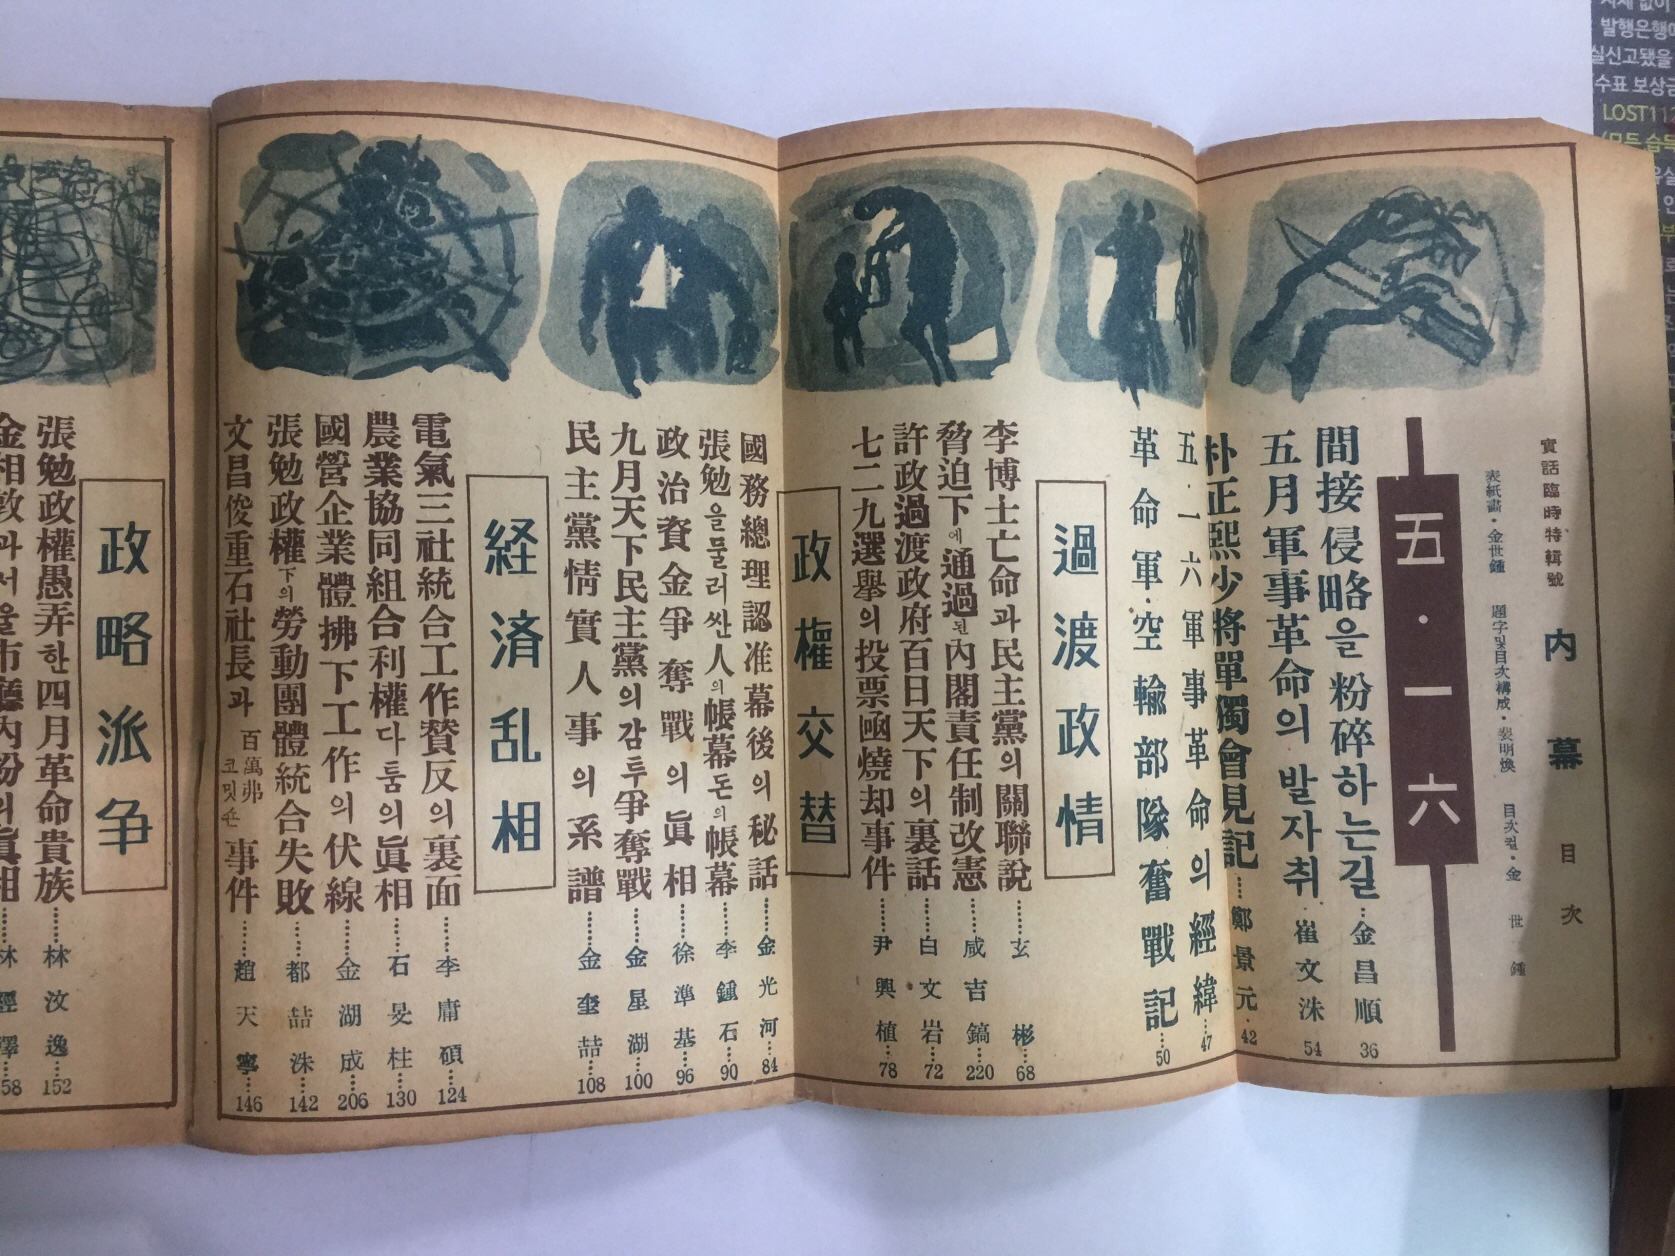 實話臨時特輯號
內幕 目次
表紙畵·金世鍾 題字및目次構成·裴明煥 目次컽·金世鍾
五·一六
間接侵略을 粉碎하는길 金昌順 36
五月軍事革命의 발자취 崔文洙 54
朴正熙少將單獨會見記 鄭景元 42
五·一六軍事革命의 經緯 47
革命軍·空輸部隊奮戰記 50
過渡政情
李博士亡命과 民主黨의 關聯說 玄彬 68
脅迫下에 通過된 內閣責任制改憲 咸吉鎬 220
許政過渡政府百日天下의 裏話 白文岩 72
七二九選擧의 投票凾燒却事件 尹興植 78
政權交替
國務總理認准幕後의 秘話 金光河 84
張勉을 둘러싼 人의 帳幕 돈의 帳幕 李鍾石 90
政治資金爭奪戰의 眞相 徐準基 96
九月天下民主黨의 감투爭奪戰 金星湖 100
民主黨情實人事의 系譜 金奎喆 108
経済乱相
電氣三社統合工作贊反의 裏面 李庸碩 124
農業協同組合利權다툼의 眞相 石旻柱 130
國營企業體拂下工作의 伏線 金湖成 206
張勉政權下의 勞動團體統合失敗 都喆洙 142
文昌俊重石社長과 百萬弗 코밋숀 事件 趙天寧 146
政略派争
張勉政權愚弄한 四月革命貴族 林汶逸 152
金相敦과 서울市廳內紛의 眞相 林經澤 58
지체 없이
발행은행에
실신고됐을
수표 보상금
LOST112